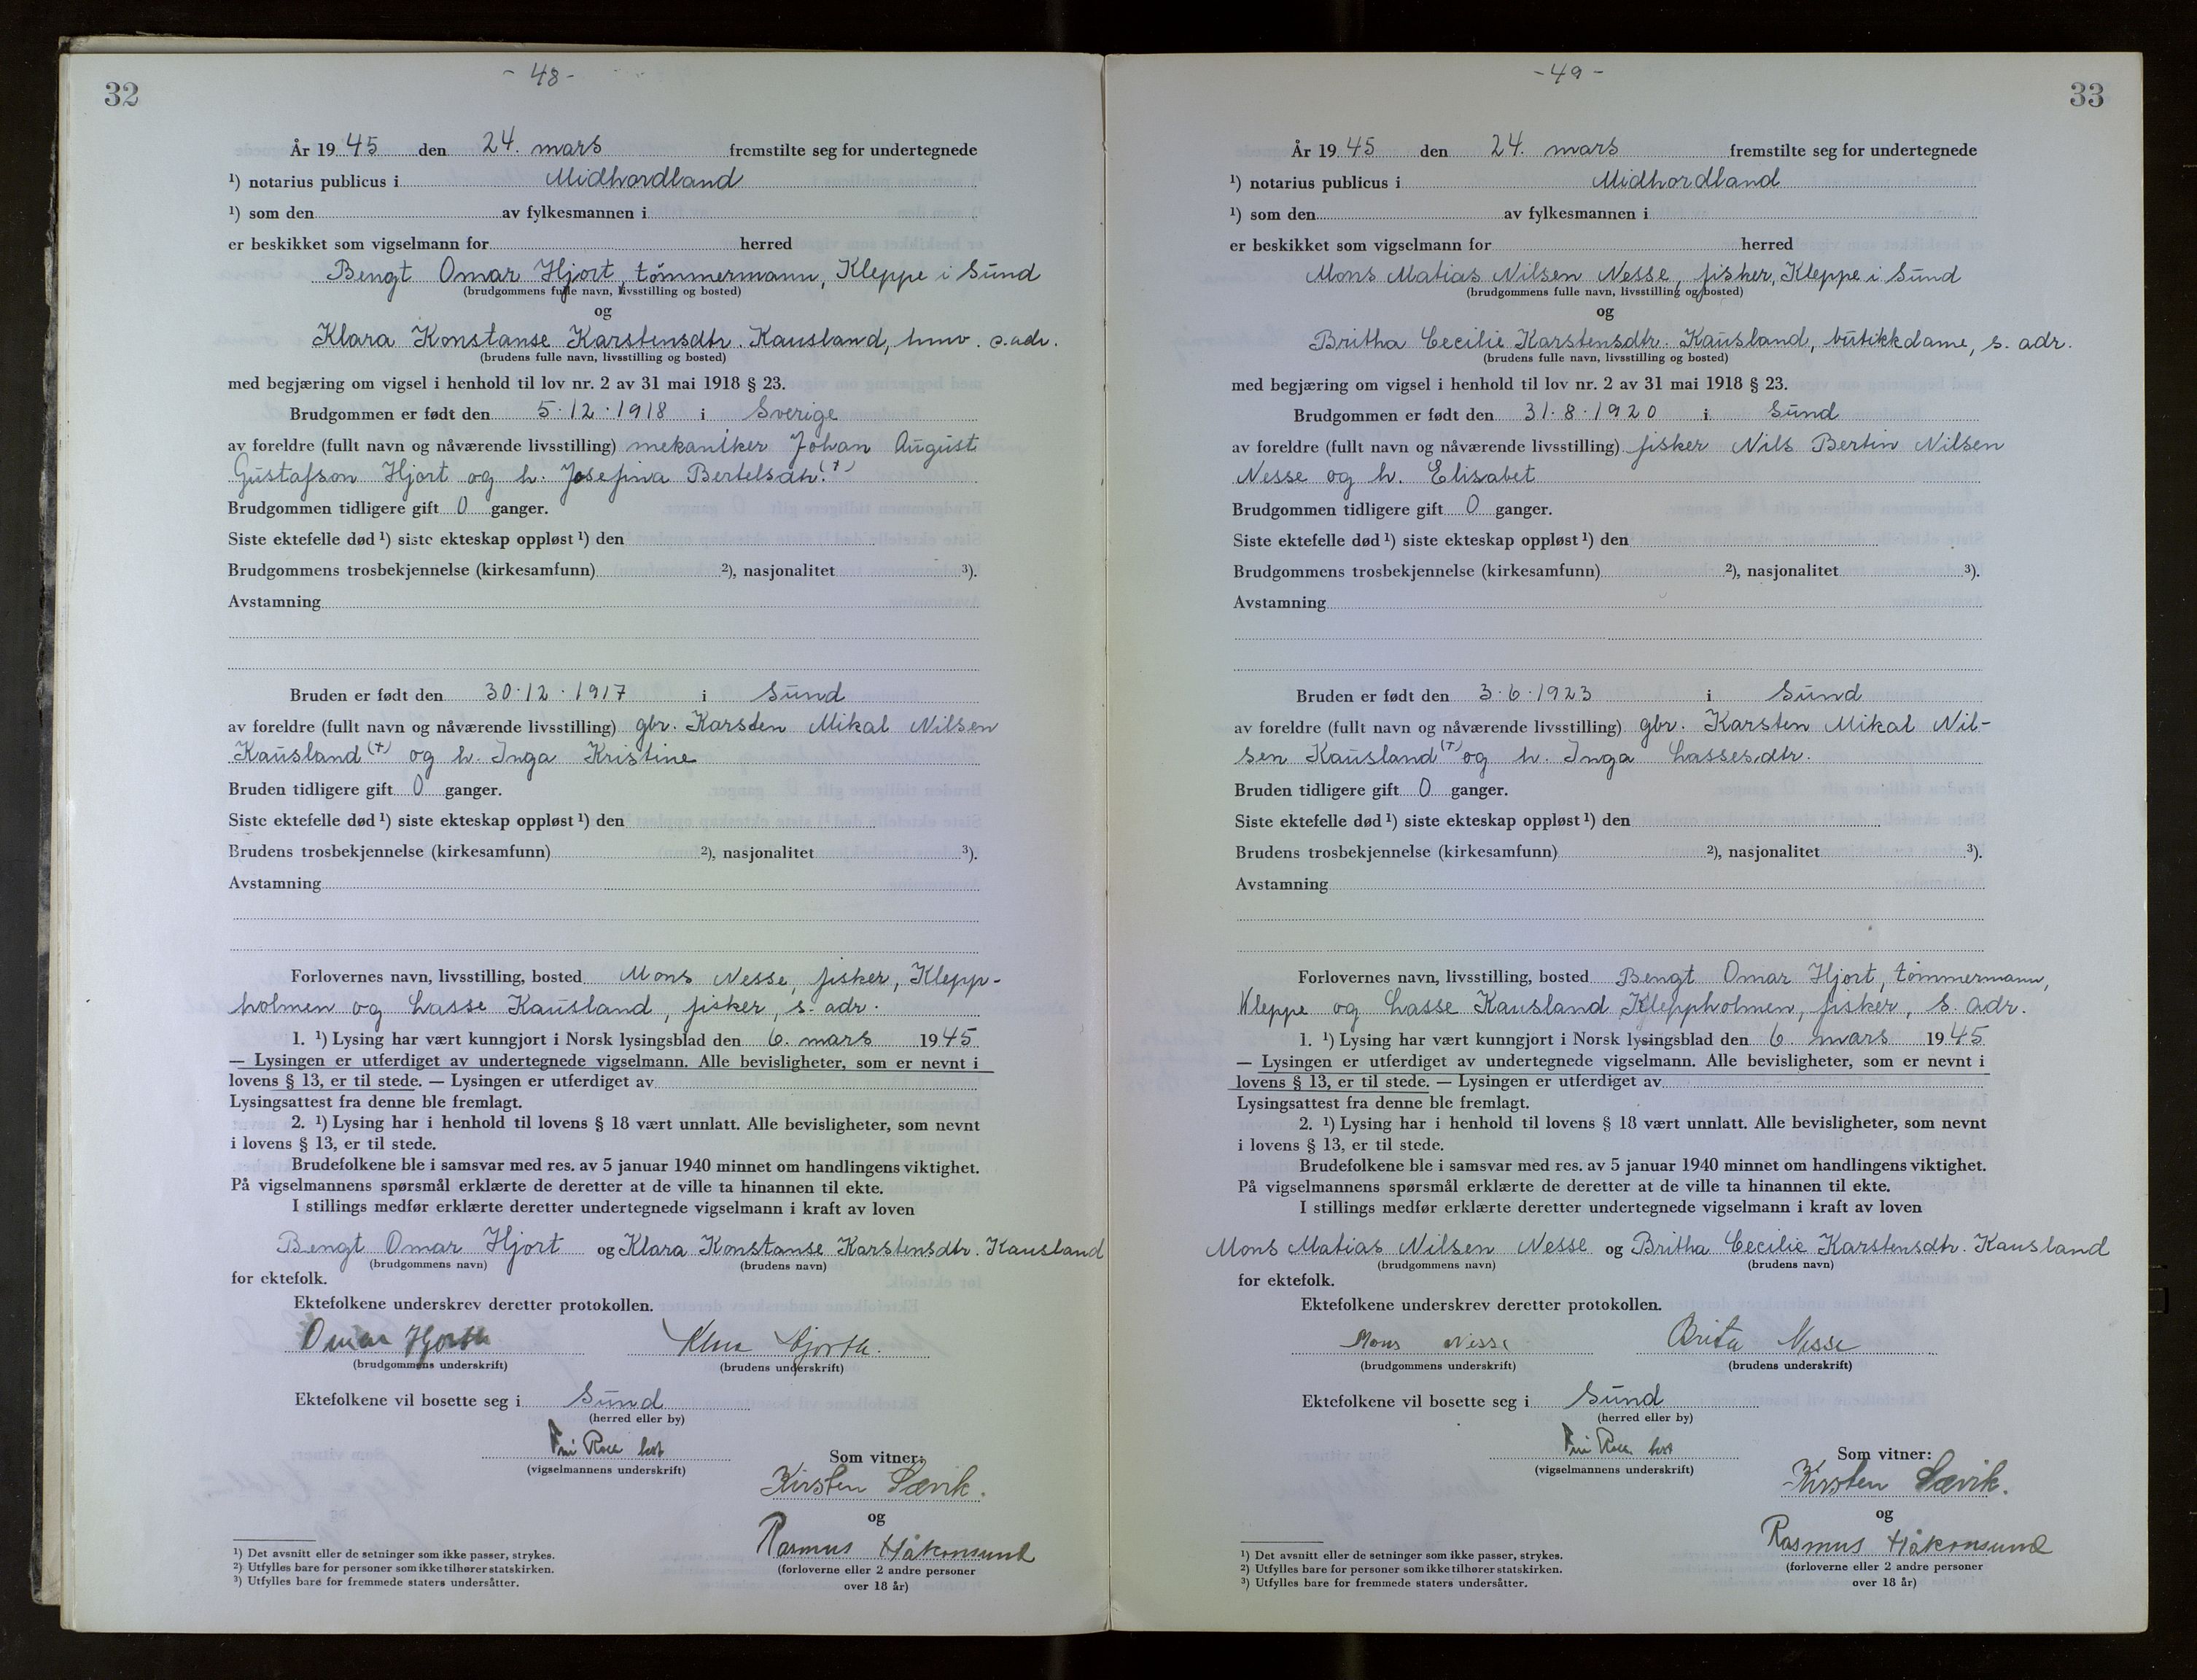 32
- 48 -
År 1945 den 24. mars fremstilte seg for undertegnede
¹) notarius publicus i Midhordland
¹) som den av fylkesmannen i
er beskikket som vigselmann for herred
Bengt Omar Hjort, tömmermann, Kleppe i Sund
(brudgommens fulle navn, livsstilling og bosted)
og
Klara Konstanse Karstensdtr. Kausland, hmv. s. adr.
(brudens fulle navn, livsstilling og bosted)
med begjæring om vigsel i henhold til lov nr. 2 av 31 mai 1918 § 23.
Brudgommen er født den 5.12.1918 i Sverige
av foreldre (fullt navn og nåværende livsstilling) mekaniker Johan August
Gustafson Hjort og h. Josefina Bertelsdtr. (†)
Brudgommen tidligere gift 0 ganger.
Siste ektefelle død ¹) siste ekteskap oppløst ¹) den
Brudgommens trosbekjennelse (kirkesamfunn) ²), nasjonalitet ³).
Avstamning
Bruden er født den 30.12.1917 i Sund
av foreldre (fullt navn og nåværende livsstilling) gbr. Karsten Mikal Nilsen
Kausland (†) og h. Inga Kristine
Bruden tidligere gift 0 ganger.
Siste ektefelle død ¹) siste ekteskap oppløst ¹) den
Brudens trosbekjennelse (kirkesamfunn) ²), nasjonalitet ³).
Avstamning
Forlovernes navn, livsstilling, bosted Mons Nesse, fisker, Klepp-
holmen og Lasse Kausland, fisker, s. adr.
1. ¹) Lysing har vært kunngjort i Norsk lysingsblad den 6. mars 1945
— Lysingen er utferdiget av undertegnede vigselmann. Alle bevisligheter, som er nevnt i
lovens § 13, er til stede. — Lysingen er utferdiget av
Lysingsattest fra denne ble fremlagt.
2. ¹) Lysing har i henhold til lovens § 18 vært unnlatt. Alle bevisligheter, som nevnt
i lovens § 13, er til stede.
Brudefolkene ble i samsvar med res. av 5 januar 1940 minnet om handlingens viktighet.
På vigselmannens spørsmål erklærte de deretter at de ville ta hinannen til ekte.
I stillings medfør erklærte deretter undertegnede vigselmann i kraft av loven
Bengt Omar Hjort og Klara Konstanse Karstensdtr. Kausland
(brudgommens navn) (brudens navn)
for ektefolk.
Ektefolkene underskrev deretter protokollen.
Omar Hjorth Klara Hjorth.
(brudgommens underskrift) (brudens underskrift)
Ektefolkene vil bosette seg i Sund
(herred eller by)
(vigselmannens underskrift)
Som vitner:
Kirsten Sævik.
og
Rasmus Håkonsund
(forloverne eller 2 andre personer
over 18 år)
¹) Det avsnitt eller de setninger som ikke passer, strykes.
²) Utfylles bare for personer som ikke tilhører statskirken.
³) Utfylles bare for fremmede staters undersåtter.
33
- 49 -
År 1945 den 24. mars fremstilte seg for undertegnede
¹) notarius publicus i Midhordland
¹) som den av fylkesmannen i
er beskikket som vigselmann for herred
Mons Matias Nilsen Nesse, fisker, Kleppe i Sund
(brudgommens fulle navn, livsstilling og bosted)
og
Britha Cecilie Karstensdtr. Kausland, butikkdame, s. adr.
(brudens fulle navn, livsstilling og bosted)
med begjæring om vigsel i henhold til lov nr. 2 av 31 mai 1918 § 23.
Brudgommen er født den 31.8.1920 i Sund
av foreldre (fullt navn og nåværende livsstilling) fisker Nils Bertin Nilsen
Nesse og h. Elisabet
Brudgommen tidligere gift 0 ganger.
Siste ektefelle død ¹) siste ekteskap oppløst ¹) den
Brudgommens trosbekjennelse (kirkesamfunn) ²), nasjonalitet ³).
Avstamning
Bruden er født den 3.6.1923 i Sund
av foreldre (fullt navn og nåværende livsstilling) gbr. Karsten Mikal Nil-
sen Kausland (†) og h. Inga Lassesdtr.
Bruden tidligere gift 0 ganger.
Siste ektefelle død ¹) siste ekteskap oppløst ¹) den
Brudens trosbekjennelse (kirkesamfunn) ²), nasjonalitet ³).
Avstamning
Forlovernes navn, livsstilling, bosted Bengt Omar Hjort, tömmermann,
Kleppe og Lasse Kausland Kleppholmen, fisker, s. adr.
1. ¹) Lysing har vært kunngjort i Norsk lysingsblad den 6. mars 1945
— Lysingen er utferdiget av undertegnede vigselmann. Alle bevisligheter, som er nevnt i
lovens § 13, er til stede. — Lysingen er utferdiget av
Lysingsattest fra denne ble fremlagt.
2. ¹) Lysing har i henhold til lovens § 18 vært unnlatt. Alle bevisligheter, som nevnt
i lovens § 13, er til stede.
Brudefolkene ble i samsvar med res. av 5 januar 1940 minnet om handlingens viktighet.
På vigselmannens spørsmål erklærte de deretter at de ville ta hinannen til ekte.
I stillings medfør erklærte deretter undertegnede vigselmann i kraft av loven
Mons Matias Nilsen Nesse og Britha Cecilie Karstensdtr. Kausland
(brudgommens navn) (brudens navn)
for ektefolk.
Ektefolkene underskrev deretter protokollen.
Mons Nesse Brita Nesse
(brudgommens underskrift) (brudens underskrift)
Ektefolkene vil bosette seg i Sund
(herred eller by)
(vigselmannens underskrift)
Som vitner:
Kirsten Sævik.
og
Rasmus Håkonsund
(forloverne eller 2 andre personer
over 18 år)
¹) Det avsnitt eller de setninger som ikke passer, strykes.
²) Utfylles bare for personer som ikke tilhører statskirken.
³) Utfylles bare for fremmede staters undersåtter.